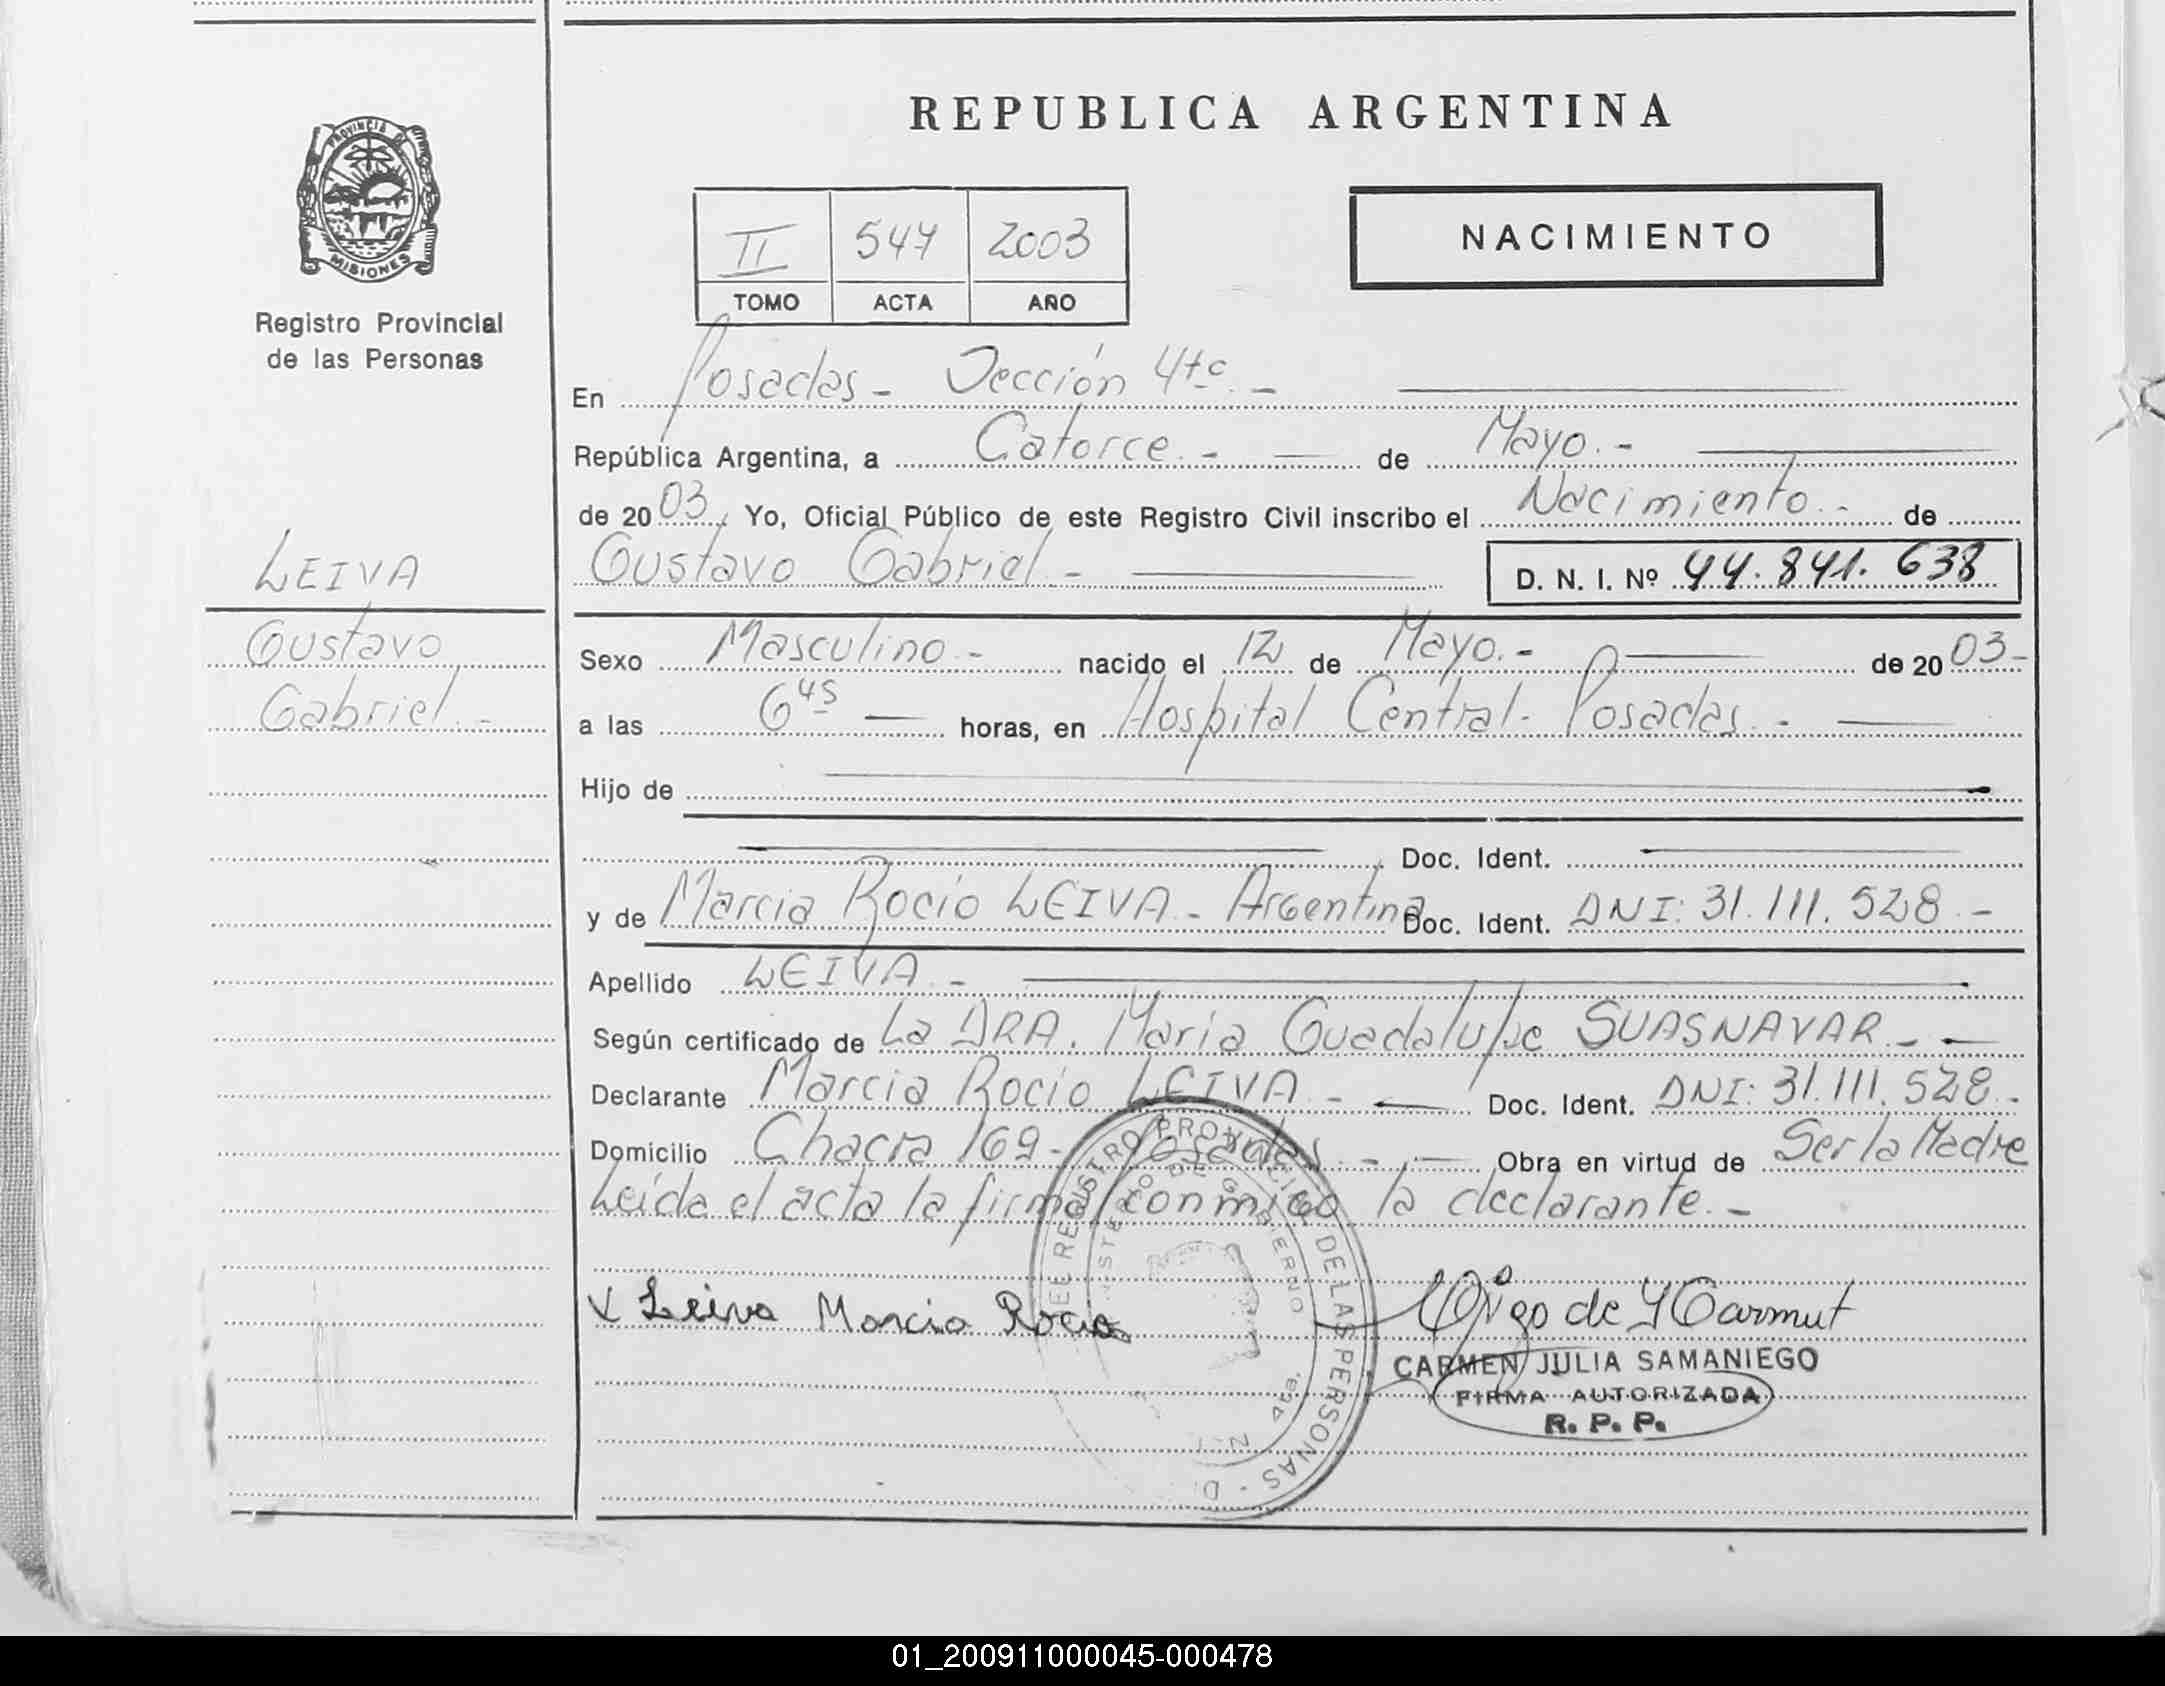 REPUBLICA ARGENTINA
PROVINCIA DE MISIONES
Registro Provincial
de las Personas
II 547 2003
TOMO ACTA AÑO
NACIMIENTO
En Posadas - Sección 4ta. -
República Argentina, a Catorce. - de Mayo. -
de 2003, Yo, Oficial Público de este Registro Civil inscribo el Nacimiento. - de
Gustavo Gabriel - D. N. I. Nº 44.841.638
LEIVA
Gustavo
Gabriel. -
Sexo Masculino. - nacido el 12 de Mayo. - de 2003 -
a las 6 45 horas, en Hospital Central. Posadas. -
Hijo de
Doc. Ident.
y de Marcia Rocio LEIVA - Argentina Doc. Ident. DNI: 31.111.528. -
Apellido LEIVA. -
Según certificado de La DRA. Maria Guadalupe SUASNAVAR. -
Declarante Marcia Rocio LEIVA - Doc. Ident. DNI: 31.111.528. -
Domicilio Chacra 169 - Posadas. - Obra en virtud de Ser la Madre
Leída el acta la firma conmigo la declarante. -
REGISTRO PROVINCIAL DE LAS PERSONAS
MINISTERIO DE GOBIERNO
4ta.
x Leiva Marcia Rocio
CARMEN JULIA SAMANIEGO
FIRMA AUTORIZADA
R. P. P.
01_200911000045-000478